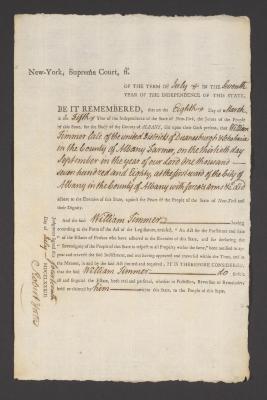 New-York, Supreme Court, ff.
OF THE TERM OF July IN THE Seventh
YEAR OF THE INDEPENDENCE OF THIS STATE,
BE IT REMEMBERED, that on the Eighth Day of March
in the Fifth Year of the Independence of the State of New-York, the Jurors of the People
of this State, for the Body of the County of ALBANY, did upon their Oath present, that William
Simmer late of the united Districts of Duanesburgh & Schoharie
in the County of Albany Farmer, on the thirtieth day
September in the year of our Lord one thousand
seven hundred and Eighty, at the first ward of the City of
Albany in the County of Albany with force & arms &c did
adhere to the Enemies of this State, against the Peace of the People of the State of New-York and
their Dignity.
And the said William Simmer having
according to the Form of the Act of the Legislature, entitled, "An Act for the Forfeiture and Sale
"of the Estates of Persons who have adhered to the Enemies of this State, and for declaring the
"Sovereignty of the People of this State in respect to all Property within the same," been notified to appear
and traverse the said Indictment, and not having appeared and traversed within the Time, and in
the Manner, in and by the said Act limited and required; IT IS THEREFORE CONSIDERED,
that the said William Simmer do forfeit
all and singular the Estate, both real and personal, whether in Possession, Reversion or Remainder,
held or claimed by him within this State, to the People of this State.
Judgment signed this fourteenth
Day of July MDCCLXXXIII
Robert Yates